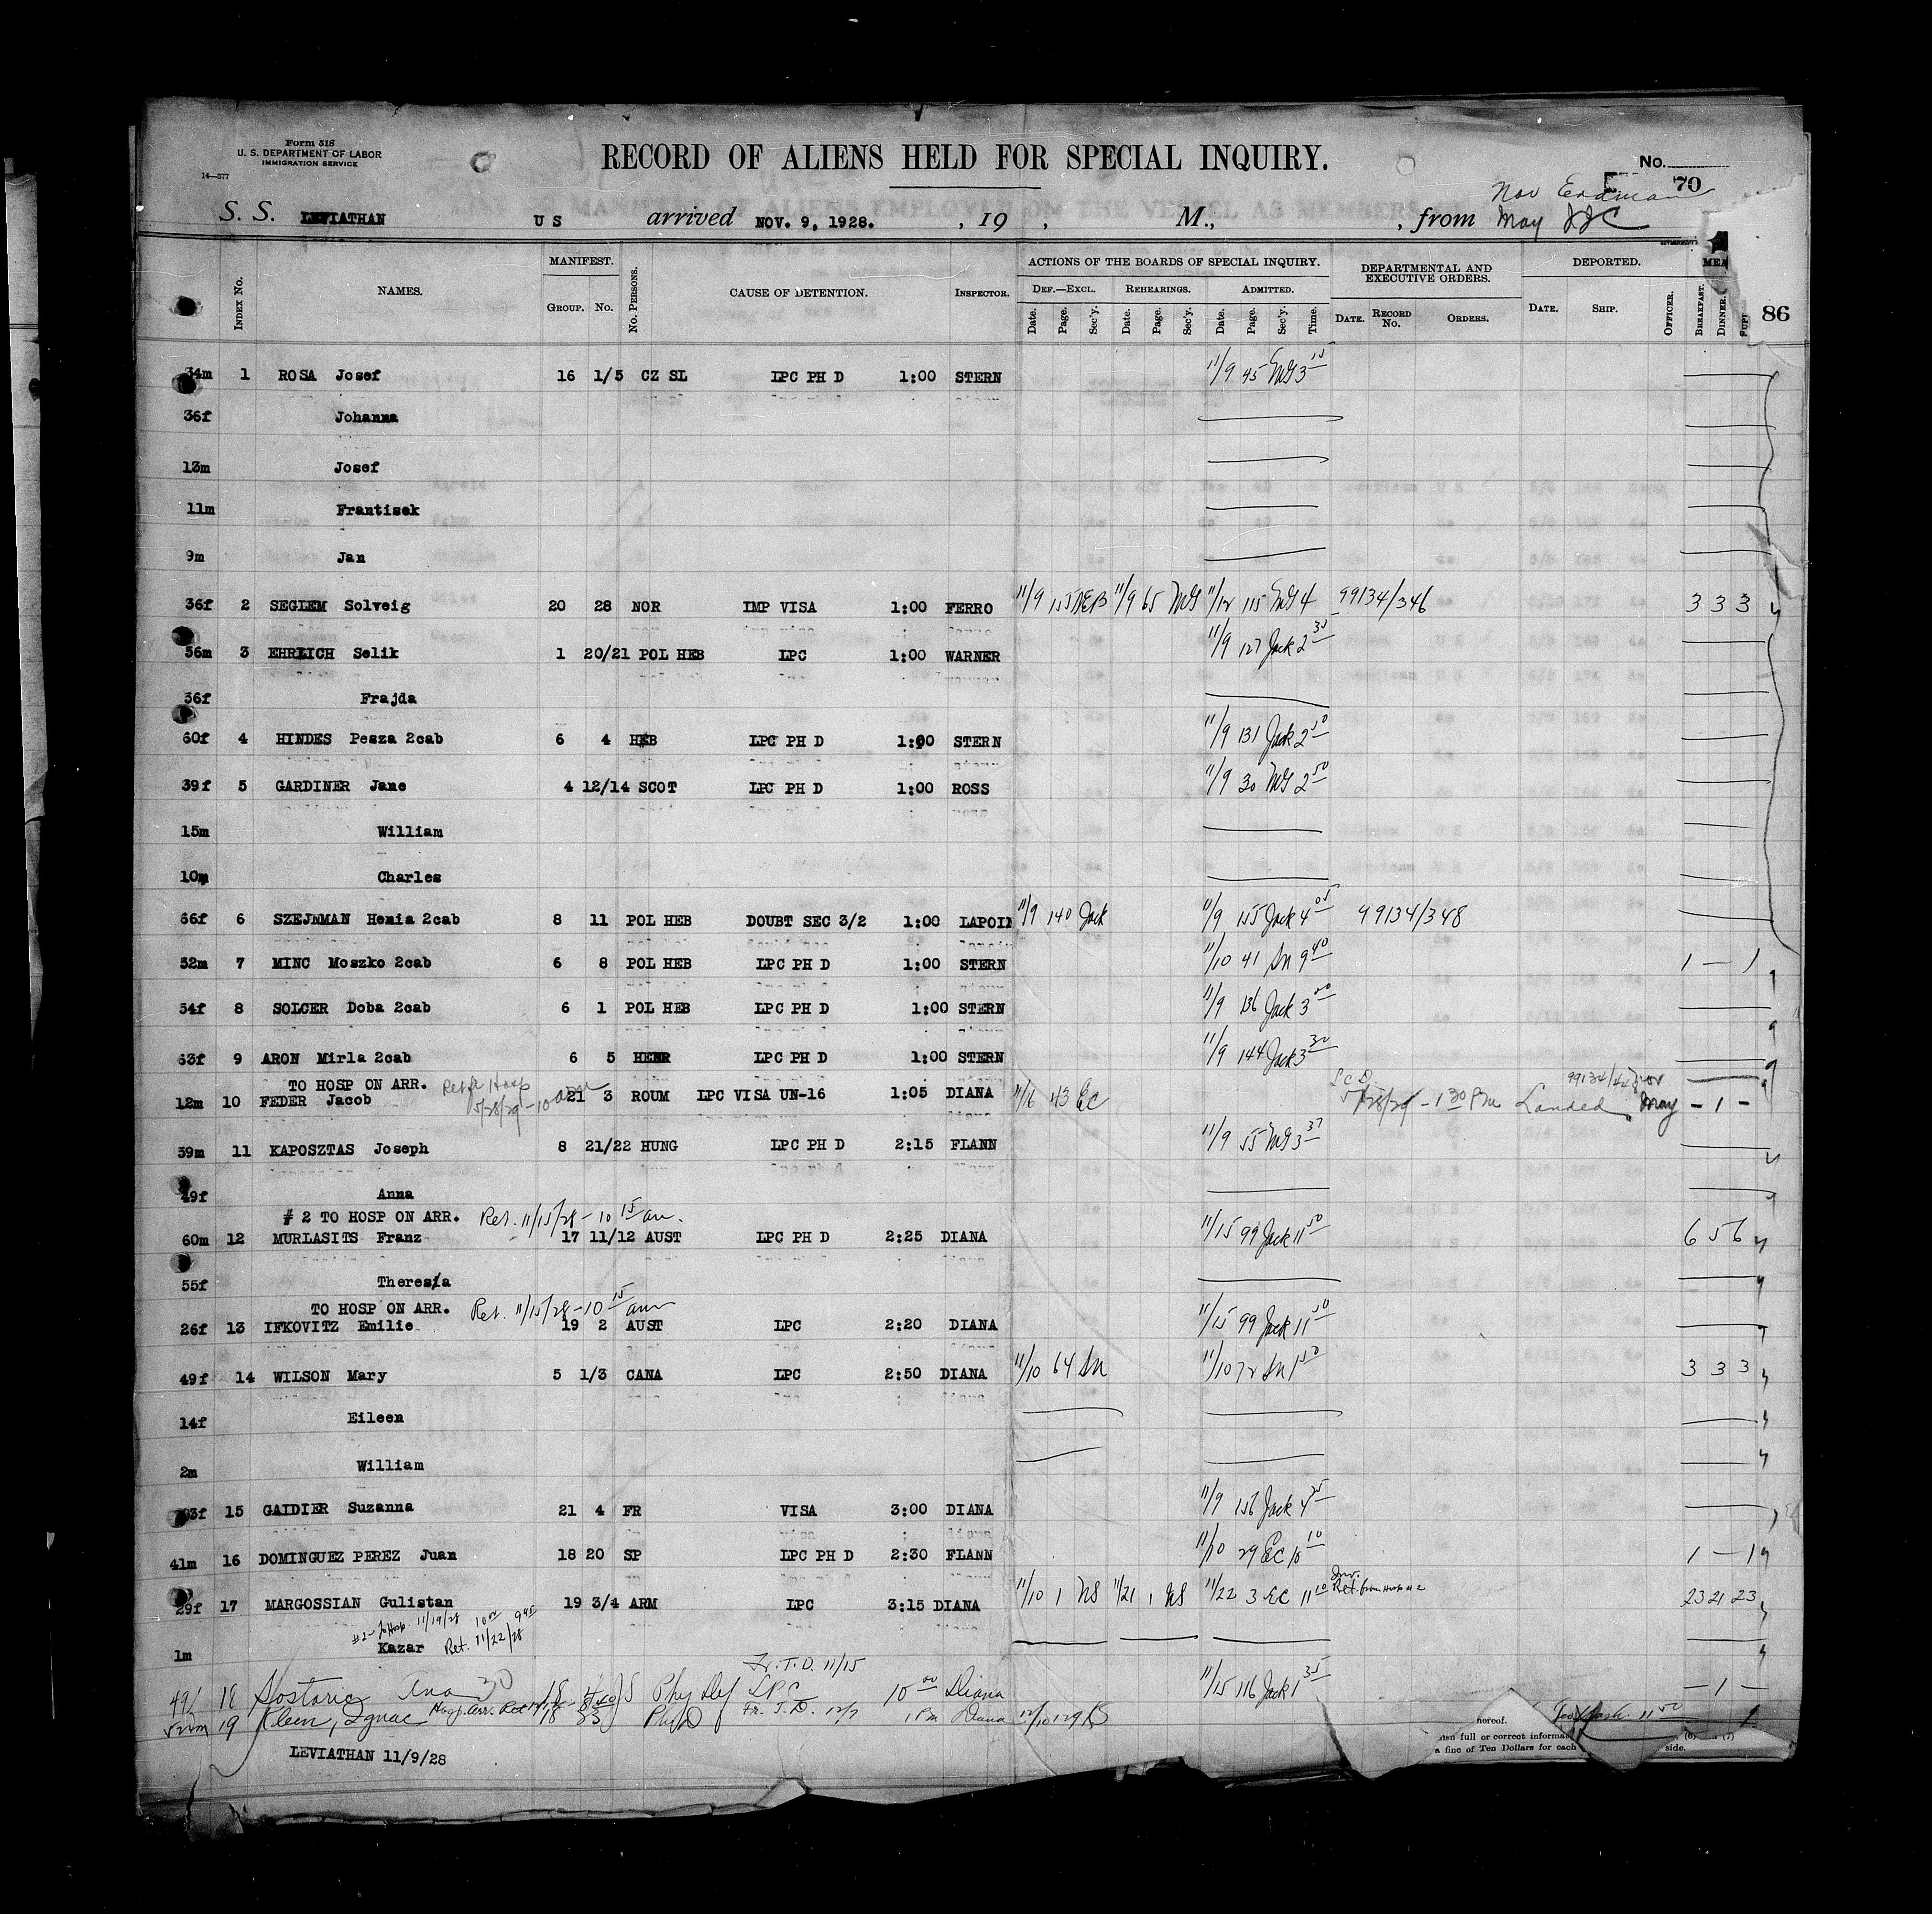 Form 518
U. S. DEPARTMENT OF LABOR
IMMIGRATION SERVICE
14—377
RECORD OF ALIENS HELD FOR SPECIAL INQUIRY.
No.
70
S. S. LEVIATHAN U S arrived NOV. 9, 1928. , 19 , M., , from May
INDEX No. NAMES. MANIFEST. GROUP. No. No. PERSONS. CAUSE OF DETENTION. INSPECTOR. ACTIONS OF THE BOARDS OF SPECIAL INQUIRY. DEPARTMENTAL AND EXECUTIVE ORDERS. DEPORTED. MEA
DEF.—EXCL. REHEARINGS. ADMITTED.
Date. Page. Sec'y. Date. Page. Sec'y. Date. Page. Sec'y. Time. DATE. RECORD No. ORDERS. DATE. SHIP. OFFICER. BREAKFAST. DINNER. 86
34m 1 ROSA Josef 16 1/5 CZ SL LPC PH D 1:00 STERN 11/9 45 MG 3 15
36f Johanna
13m Josef
11m Frantisek
9m Jan
36f 2 SEGLEM Solveig 20 28 NOR IMP VISA 1:00 FERRO 11/9 65 MG 11/12 115 MG 4 99134/346 3 3 3
56m 3 EHRLICH Selik 1 20/21 POL HEB LPC 1:00 WARNER 11/9 127 Jack 2 30
36f Frajda
60f 4 HINDES Pesza 2cab 6 4 HEB LPC PH D 1:00 STERN 11/9 131 Jack 2 50
39f 5 GARDINER Jane 4 12/14 SCOT LPC PH D 1:00 ROSS 11/9 30 MG 2 50
15m William
10m Charles
66f 6 SZEJNMAN Henia 2cab 8 11 POL HEB DOUBT SEC 3/2 1:00 LAPOIN 11/9 140 Jack 11/9 155 Jack 4 05 99134/348
52m 7 MINC Moszko 2cab 6 8 POL HEB LPC PH D 1:00 STERN 11/10 41 9 40 1 — 1
54f 8 SOLCER Doba 2cab 6 1 POL HEB LPC PH D 1:00 STERN 11/9 136 Jack 3 00
63f 9 ARON Mirla 2cab 6 5 HEBR LPC PH D 1:00 STERN 11/9 144 Jack 3 30
TO HOSP ON ARR.
12m 10 FEDER Jacob 5/28/29 - 10 21 3 ROUM LPC VISA UN-16 1:05 DIANA 11/16 43 EC 5/28/29 - 1 30 Pm Landed May - 1 -
39m 11 KAPOSZTAS Joseph 8 21/22 HUNG LPC PH D 2:15 FLANN 11/9 55 MG 3 37
49f Anna
# 2 TO HOSP ON ARR. Ret. 11/15/28 - 10 15 am.
60m 12 MURLASITS Franz 17 11/12 AUST LPC PH D 2:25 DIANA 11/15 99 Jack 11 50 6 5 6
55f Theresia
TO HOSP ON ARR. Ret. 11/15/28 - 10 15 am
26f 13 IFKOVITZ Emilie 19 2 AUST LPC 2:20 DIANA 11/15 99 Jack 11 50
49f 14 WILSON Mary 5 1/3 CANA LPC 2:50 DIANA 11/10 64 11/10 72 1 50 3 3 3
14f Eileen
2m William
15 GAIDIER Suzanna 21 4 FR VISA 3:00 DIANA 11/9 156 Jack 4 25
41m 16 DOMINGUEZ PEREZ Juan 18 20 SP LPC PH D 2:30 FLANN 11/10 29 EC 10 10 1 — 1
29f 17 MARGOSSIAN Gulistan 19 3/4 ARM LPC 3:15 DIANA 11/10 1 NS 11/21 1 NS 11/22 3 EC 11 10 Ret. from Hosp # 2 23 21 23
#2- To Hosp. 11/19/28 10 00
1m Kazar Ret. 11/22/28 9 45
Fr. T. D. 11/15
49f 18 Ana 30 18 Phy Def LPC 10 00 Diana 11/15 116 Jack 1 35 - 1 -
19 Kleen, Ignac Hosp. arr. 18 33 Phy D Fr. T. D. 12/7 1 Pm Diana 12/10 129 11 50 1
hereof.
full or correct informat (6) (7)
a fine of Ten Dollars for each side.
LEVIATHAN 11/9/28